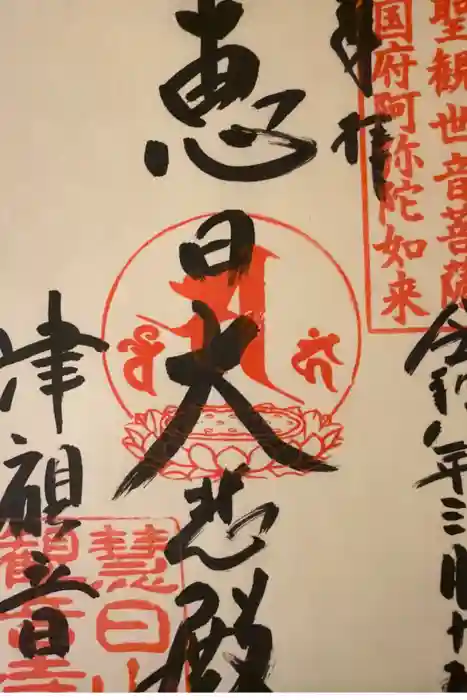 聖観世音菩薩
国府阿弥陀如来
奉拝
令和八年三月十五
恵日大悲殿
津観音
慧日山
観音寺